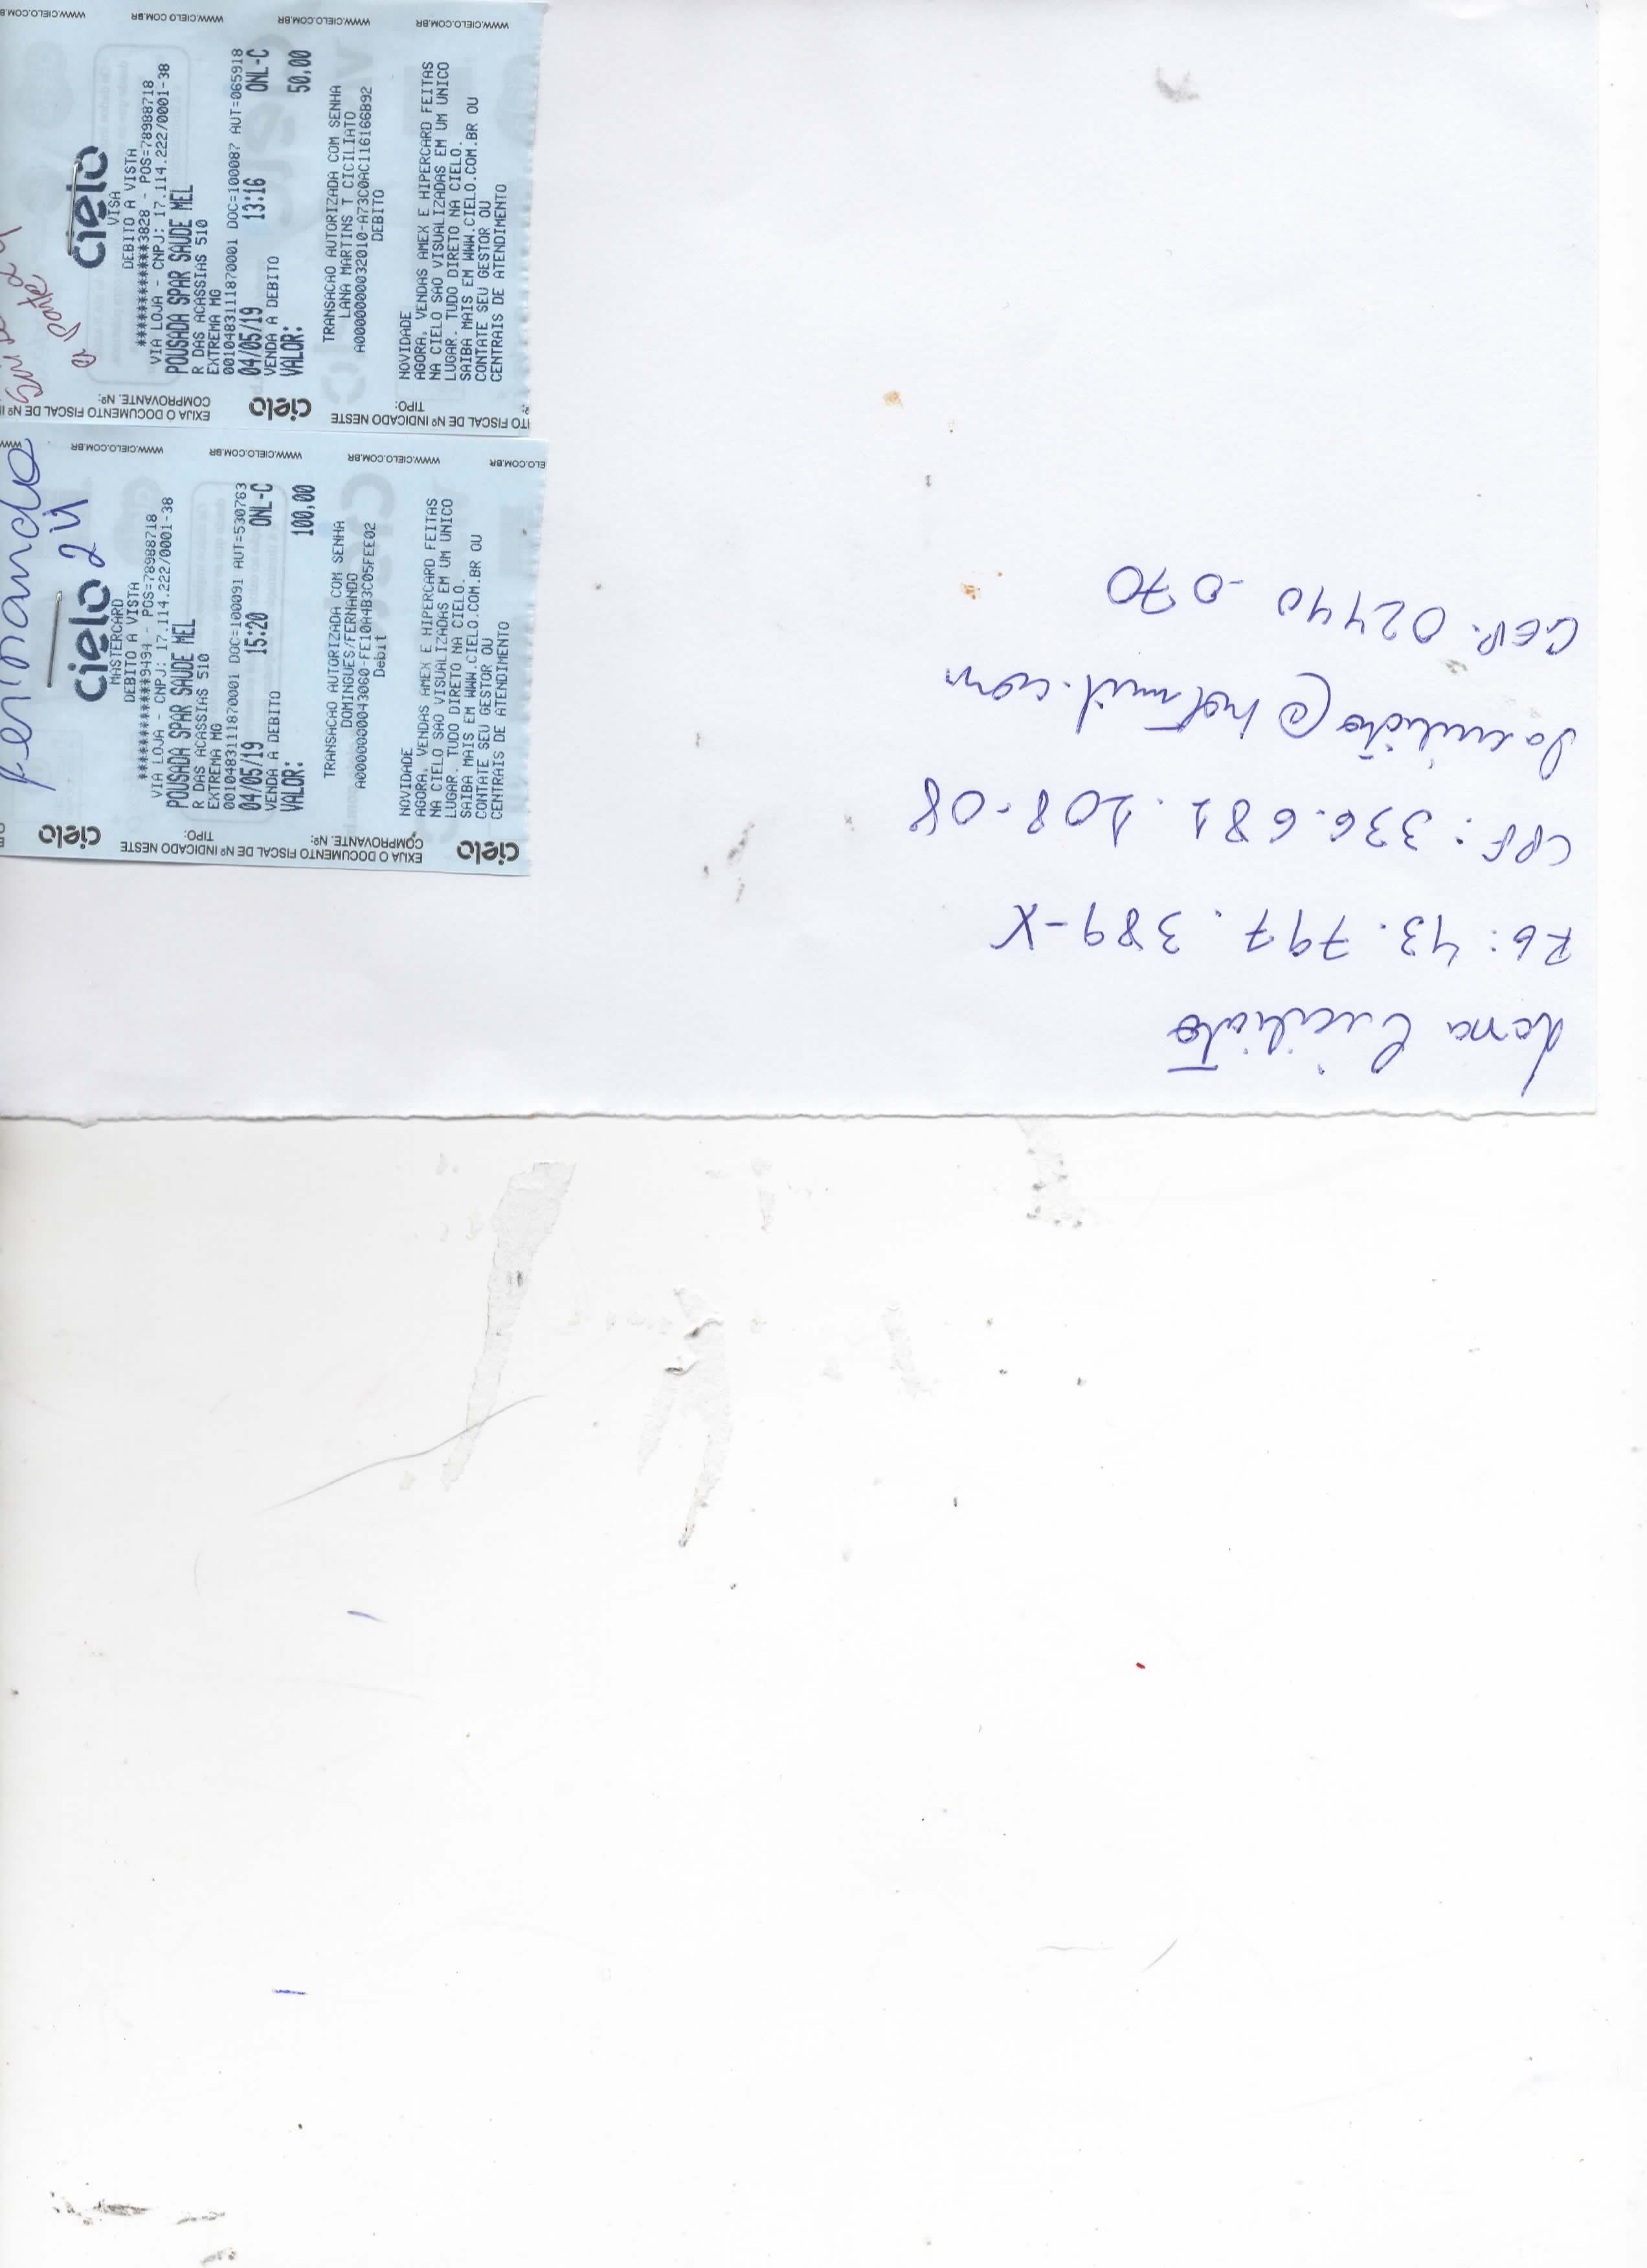 Lana Ciciliato
RG: 43.797.389-X
CPF: 336.681.208-08
@hotmail.com
CEP. 02440-070
WWW.CIELO.COM.BR WWW.CIELO.COM.BR WWW.CIELO.COM.BR WWW.CIELO.COM.BR
a parte
cielo
VISA
DEBITO A VISTA
************3828 - POS=78988718
VIA LOJA - CNPJ: 17.114.222/0001-38
POUSADA SPAR SAUDE MEL
R DAS ACASSIAS 510
EXTREMA MG
0010483111870001 DOC=100087 AUT=065918
04/05/19 13:16 ONL-C
VENDA A DEBITO
VALOR: 50,00
TRANSACAO AUTORIZADA COM SENHA
LANA MARTINS T CICILIATO
A0000000032010-A73C0AC116166B92
DEBITO
NOVIDADE
AGORA, VENDAS AMEX E HIPERCARD FEITAS
NA CIELO SAO VISUALIZADAS EM UM UNICO
LUGAR. TUDO DIRETO NA CIELO.
SAIBA MAIS EM WWW.CIELO.COM.BR OU
CONTATE SEU GESTOR OU
CENTRAIS DE ATENDIMENTO
EXIJA O DOCUMENTO FISCAL DE Nº INDICADO NESTE
COMPROVANTE. Nº:
cielo
TO FISCAL DE Nº INDICADO NESTE
TIPO:
WWW.CIELO.COM.BR WWW.CIELO.COM.BR WWW.CIELO.COM.BR
Fernando
24
cielo
MASTERCARD
DEBITO A VISTA
************9494 - POS=78988718
VIA LOJA - CNPJ: 17.114.222/0001-38
POUSADA SPAR SAUDE MEL
R DAS ACASSIAS 510
EXTREMA MG
0010483111870001 DOC=100091 AUT=530763
04/05/19 15:20 ONL-C
VENDA A DEBITO
VALOR: 100,00
TRANSACAO AUTORIZADA COM SENHA
DOMINGUES/FERNANDO
A0000000043060-FE10A4B3C05FEE02
Debit
NOVIDADE
AGORA, VENDAS AMEX E HIPERCARD FEITAS
NA CIELO SAO VISUALIZADAS EM UM UNICO
LUGAR. TUDO DIRETO NA CIELO.
SAIBA MAIS EM WWW.CIELO.COM.BR OU
CONTATE SEU GESTOR OU
CENTRAIS DE ATENDIMENTO
cielo
EXIJA O DOCUMENTO FISCAL DE Nº INDICADO NESTE
COMPROVANTE. Nº: TIPO:
cielo